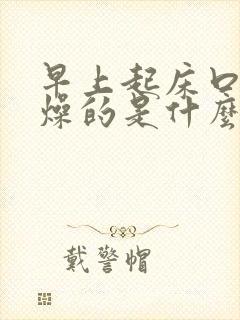 早上起床口
燥的是什麼
戴警帽